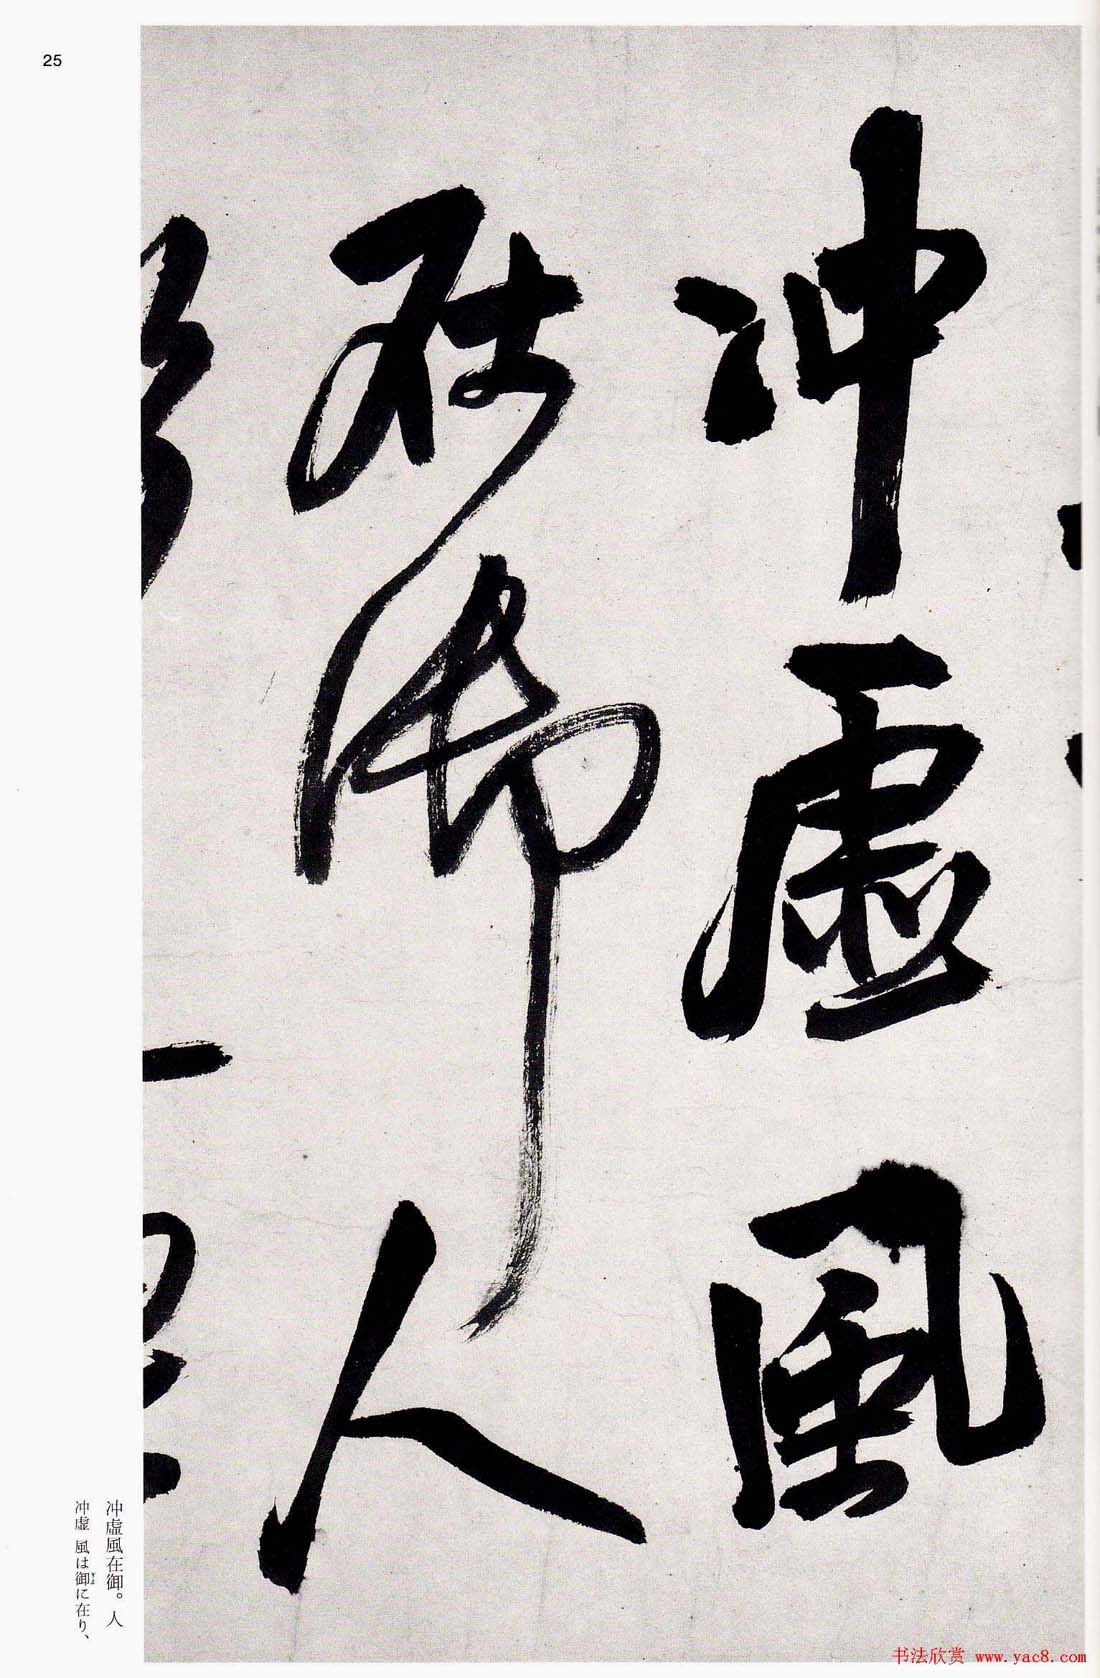 25
冲虚風
在御人
冲虚風在御。人
冲虚 風は御に在り、
书法欣赏 www.yac8.com